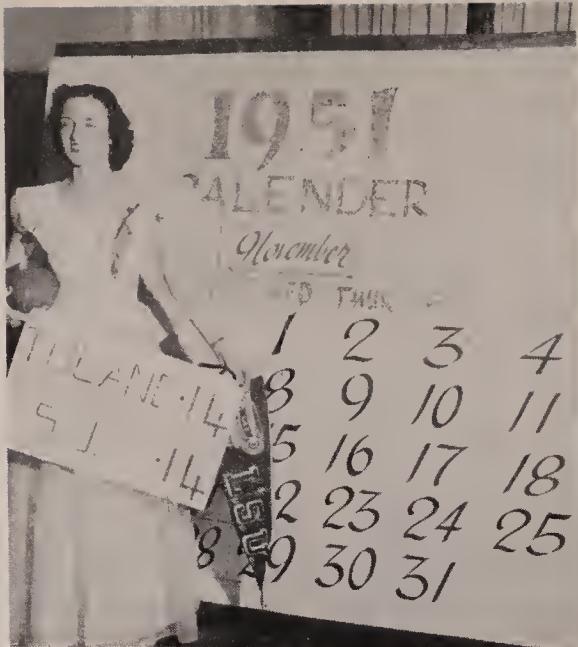 1951
CALENDER
November
THUR
1 2 3 4
8 9 10 11
5 16 17 18
2 23 24 25
8 29 30 31
TULANE·14
·14
LSU